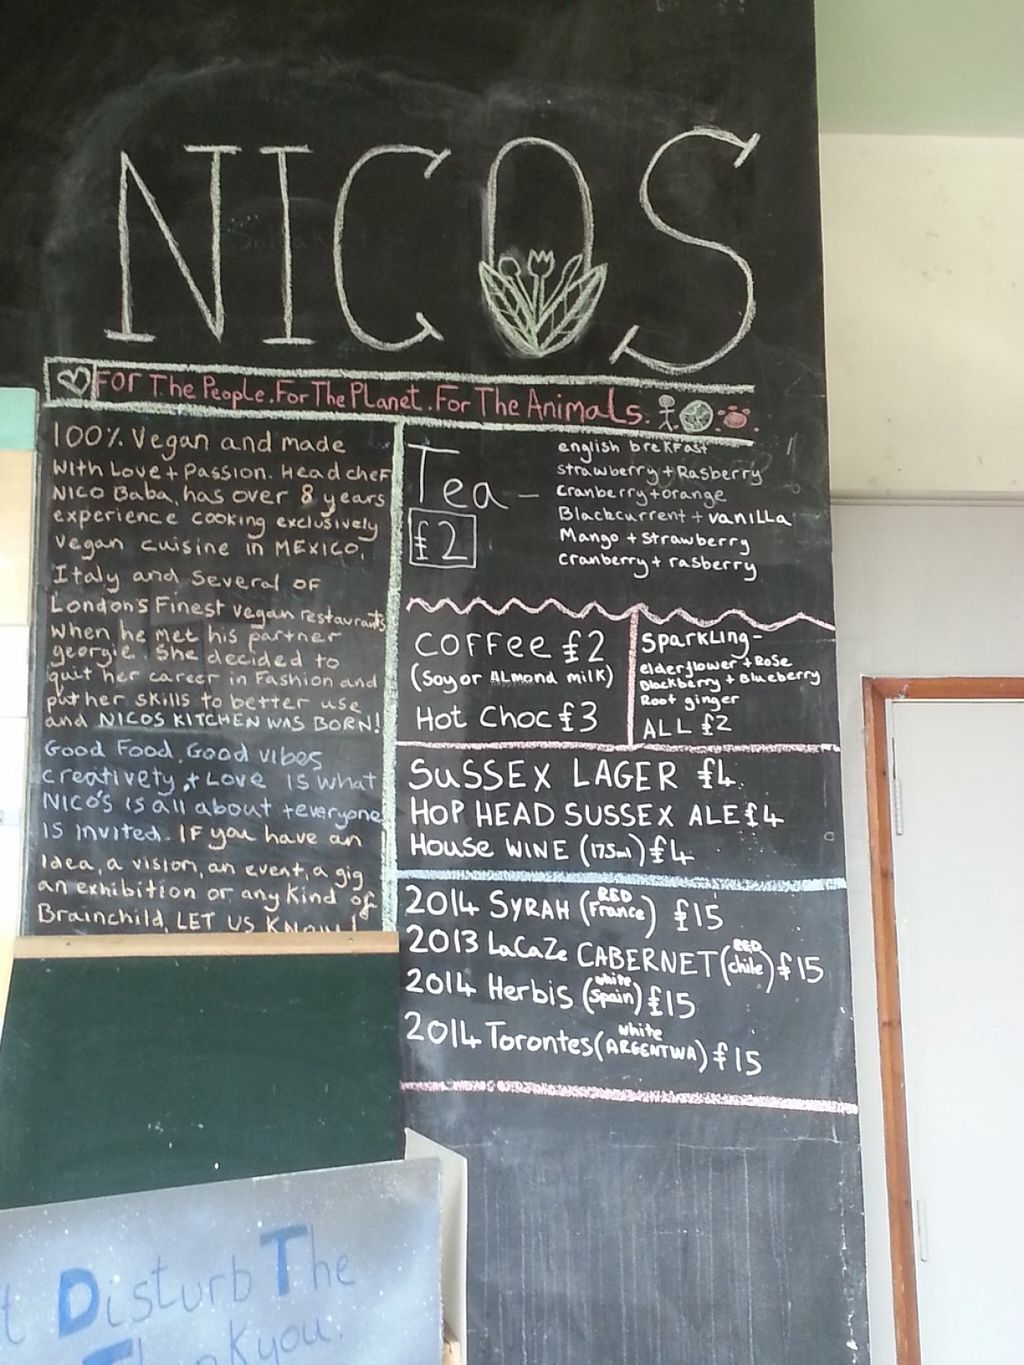 NICOS
FOR The People. For The Planet. For The Animals.
100% Vegan and made
with Love + Passion. Head chef
NICO Baba, has over 8 years
experience cooking exclusively
vegan cuisine in MEXICO,
Italy and several of
London's Finest vegan restaurants
when he met his partner
georgie. She decided to
quit her career in Fashion and
put her skills to better use
and NICOS KITCHEN WAS BORN!
Good Food. Good vibes
creativety + Love is what
NICO'S is all about + everyone
is invited. If you have an
idea, a vision, an event, a gig
an exhibition or any kind of
Brainchild, LET US KNOW!
Tea -
£2
english brekfast
strawberry + Rasberry
Cranberry + orange
Blackcurrent + vanilla
Mango + Strawberry
Cranberry + rasberry
COFFEE £2
(Soy or Almond milk)
Hot Choc £3
Sparkling -
elderflower + Rose
Blackberry + Blueberry
Root ginger
ALL £2
SUSSEX LAGER £4
HOP HEAD SUSSEX ALE £4
House WINE (175ml) £4
2014 SYRAH (RED France) £15
2013 LaCaZe CABERNET (RED chile) £15
2014 Herbis (white Spain) £15
2014 Torontes (white ARGENTINA) £15
Disturb The
Thankyou.